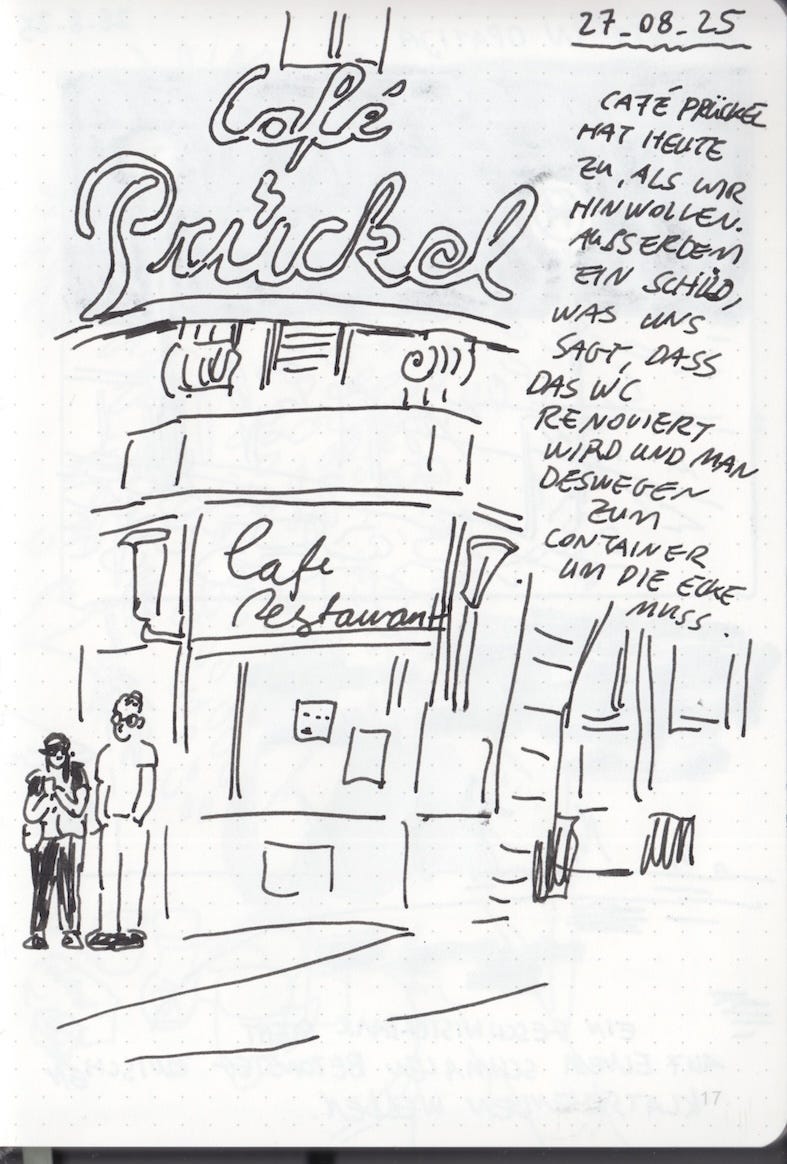 27_08_25
Café
Prückel
CAFÉ PRÜCKEL
HAT HEUTE
ZU, ALS WIR
HINWOLLEN.
AUßSERDEM
EIN SCHILD,
WAS UNS
SAGT, DASS
DAS WC
RENOVIERT
WIRD UND MAN
DESWEGEN
ZUM
CONTAINER
UM DIE ECKE
MUSS.
Cafe
restaurant
17